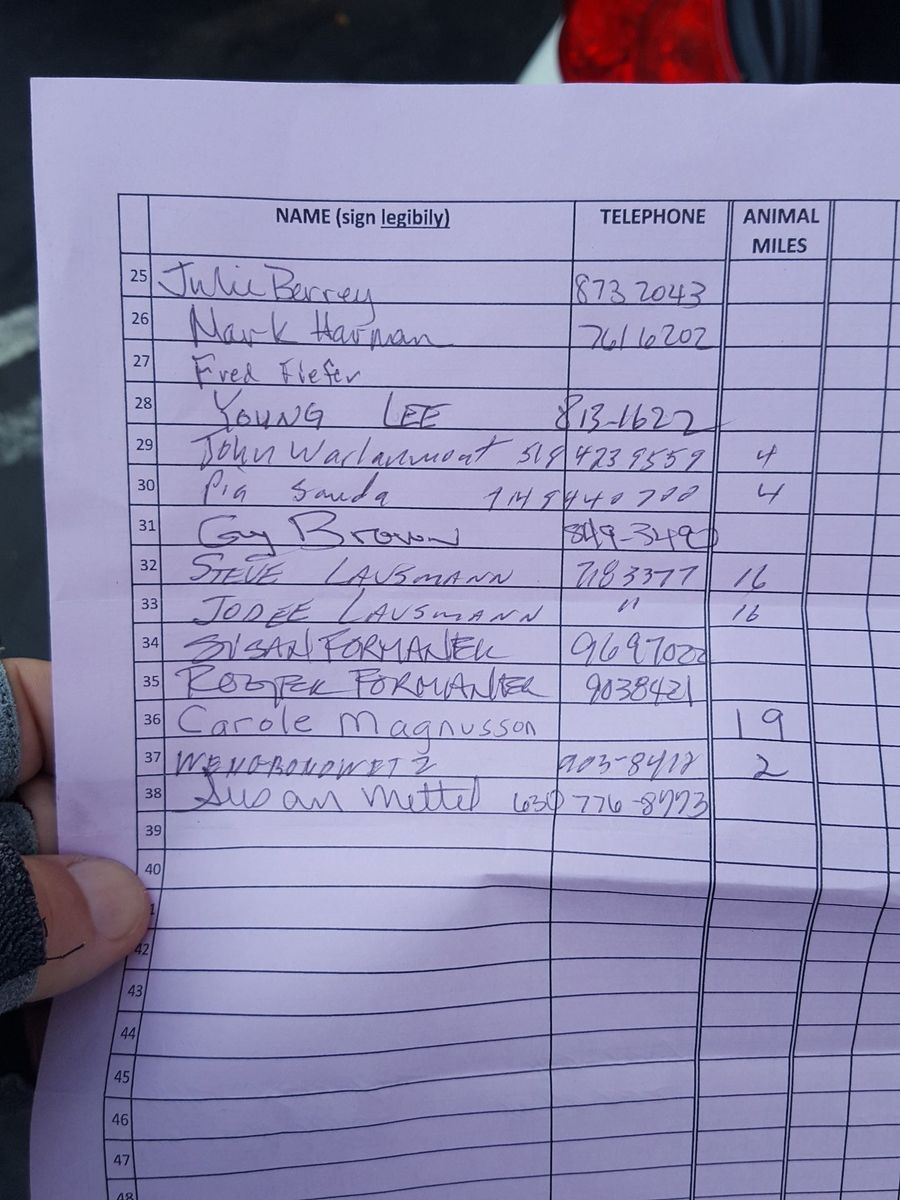 NAME (sign legibily) TELEPHONE ANIMAL
MILES
25 Julie Berrey 873 2043
26 Mark Harman 761 6202
27 Fred Fiefer
28 YOUNG LEE 813-1622
29 John 519 423 9559 4
30 Pia 4
31 Guy Brown 849-3490
32 STEVE LAUSMANN 7183377 16
33 JODEE LAUSMANN " 16
34 SUSAN FORMANEK 9697022
35 FORMANEK 9038421
36 Carole Magnusson 19
37 2
38 Susan Mettel 630 776-8993
39
40
42
43
44
45
46
47
48